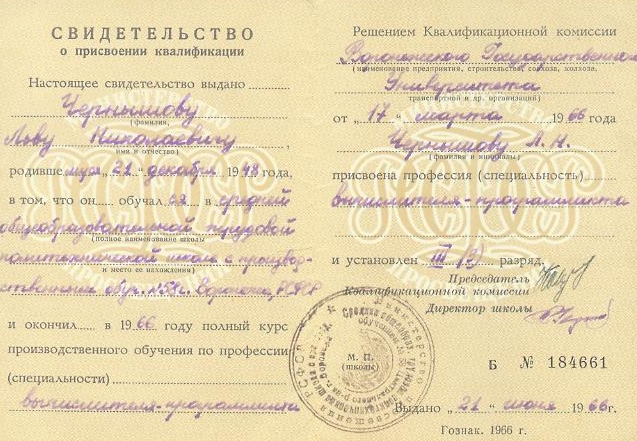 СВИДЕТЕЛЬСТВО
о присвоении квалификации
Настоящее свидетельство выдано
Чернышову
(фамилия,
Льву Николаевичу
имя и отчество)
родившемуся „21“ декабря 1948 года,
в том, что он обучался в средней
общеобразовательной трудовой
(полное наименование школы
политехнической школе с производ-
и место ее нахождения)
ственным обуч. №58 г. Воронежа, РСФСР
и окончил в 1966 году полный курс
производственного обучения по профессии
(специальности)
вычислителя-программиста
Решением Квалификационной комиссии
Воронежского Государственного
(наименование предприятия, строительства, совхоза, колхоза,
Университета
транспортной и др. организаций)
от „17“ марта 1966 года
Чернышову Л. Н.
(фамилия и инициалы)
присвоена профессия (специальность)
вычислителя-программиста
и установлен III разряд.
Председатель
Квалификационной комиссии
Директор школы
М. П.
(школы)
Б № 184661
Выдано „21“ июня 1966 г.
Гознак. 1966 г.